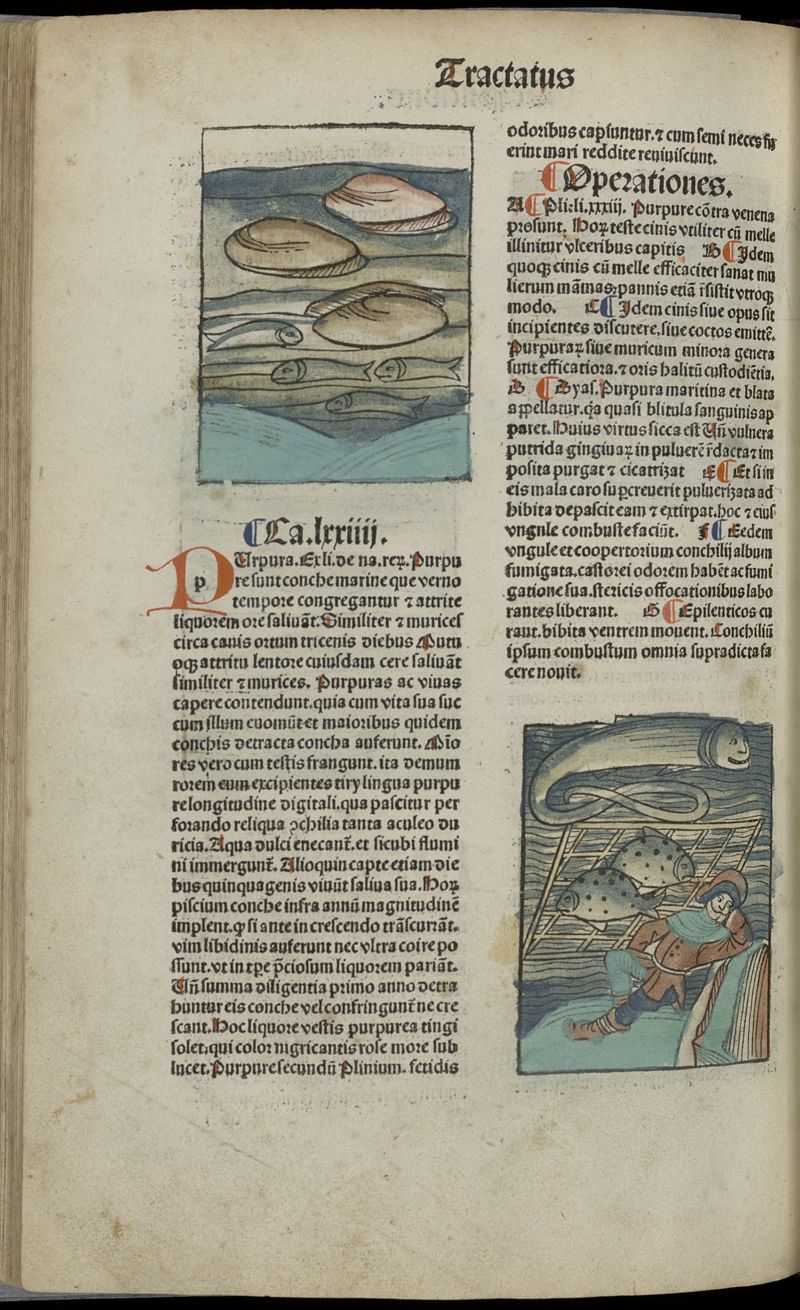 Tractatus
Ca.lxxiiij.
PUrpura. Ex li. de na. reꝝ. Purpu
p
re sunt conche marine que verno
tempore congregantur ⁊ attrite
liquorem ore saliuāt. Similiter ⁊ murices
circa canis ortum tricenis diebus Mutu
oqꝫ attritu lentore cuiusdam cere saliuāt
similiter ⁊ murices. Purpuras ac viuas
capere contendunt. quia cum vita sua suc
cum illum euomūt et maioribus quidem
conchis detracta concha auferunt. Mīo
res vero cum testis frangunt. ita demum
rorem eum excipientes tiry lingua purpu
re longitudine digitali. qua pascitur per
forando reliqua ꝯchilia tanta aculeo du
ricia. Aqua dulci enecant᷑. et sicubi flumi
ni immergunt᷑. Alioquin capte etiam die
bus quinquagenis viuūt saliua sua. Hoꝝ
piscium conche infra annū magnitudinē
implent. ꝙ si ante in crescendo trāscurrāt.
vim libidinis auferunt nec vltra coire po
ssunt. vt in tꝑe p̄ciosum liquorem pariāt.
Uñ summa diligentia primo anno detra
huntur eis conche vel confringunt᷑ ne cre
scant. Hoc liquore vestis purpurea tingi
solet. qui color nigricantis rose more sub
lucet. Purpure secundū Plinium. fetidis
odoribus capiuntur. ⁊ cum semi neces fu
erint mari reddite reuiuiscunt.
Operationes.
A Pli. li. xxxiij. Purpure cōtra venena
prosunt. Hoꝝ teste cinis vtiliter cū melle
illinitur vlceribus capitis B Idem
quoqꝫ cinis cū melle efficaciter sanat mu
lierum māmas. pannis etiā r̄sistit vtroqꝫ
modo. C Idem cinis siue opus sit
incipientes discutere. siue coctos emittē.
Purpuraꝝ siue muricum minora genera
sunt efficatiora. ⁊ oris halitū custodiētia.
D Dyas. Purpura maritina et blata
appellatur. q̄a quasi blitula sanguinis ap
paret. Huius virtus sicca est Uñ vulnera
putrida gingiuaꝝ in puluerē r̄dacta ⁊ im
posita purgat ⁊ cicatrizat E Et si in
eis mala caro suꝑcreuerit puluerizata ad
hibita depascit eam ⁊ extirpat. hoc ⁊ eius
vngule combuste faciūt. F Eedem
vngule et coopertorium conchilij album
fumigata. castorei odorem habēt ac fumi
gatione sua. stericis offocationibus labo
rantes liberant. G Epilenticos cu
rant. bibita ventrem mouent. Conchiliū
ipsum combustum omnia supradicta fa
cere nouit.